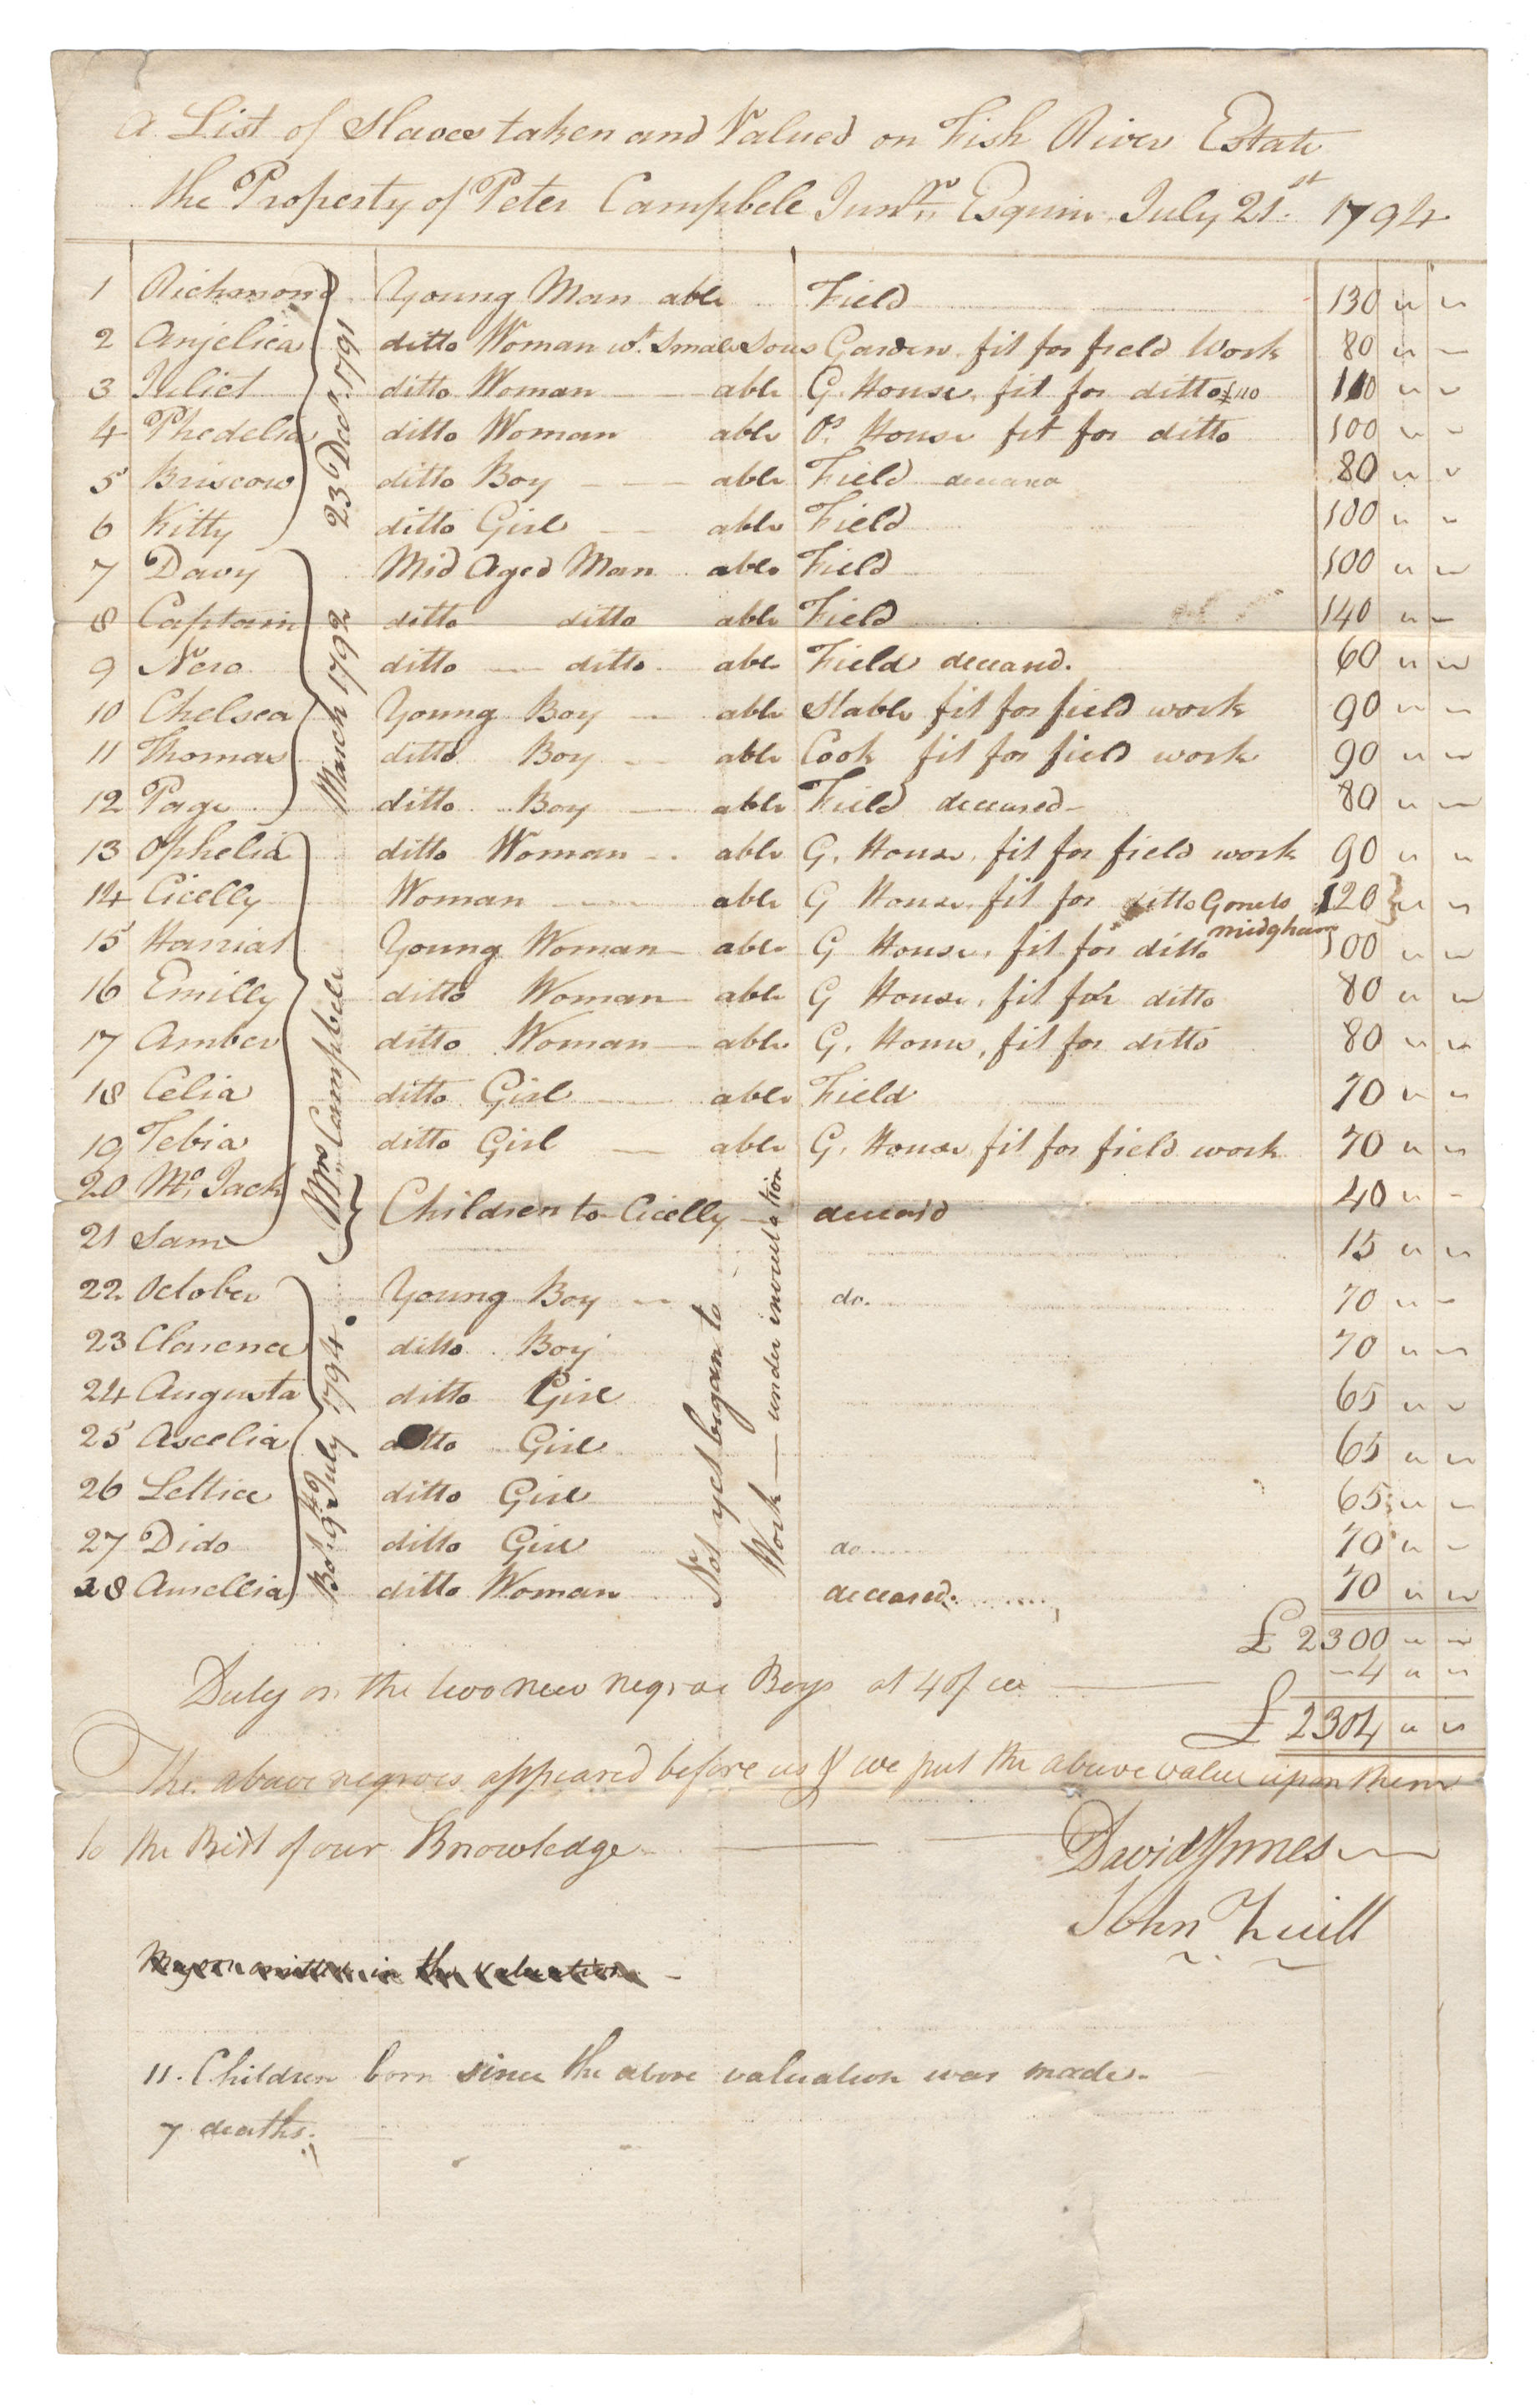 A List of Slaves taken and Valued on Fish River Estate
the Property of Peter Campbell Junr. Esquire July 21st. 1794
1 Richmond Young Man able Field 130 " "
2 Anjelica ditto Woman wt. Small Sores Garden, fit for field Work 80 " "
3 Juliet ditto Woman able G. House, fit for ditto £110 110 " "
4 Phedelia ditto Woman able O. House fit for ditto 100 " "
5 Briscow ditto Boy able Field deceased 80 " "
6 Kitty ditto Girl able Field 100 " "
23 Decr. 1791
7 Davy Mid Aged Man able Field 100 " "
8 Captain ditto ditto able Field 140 " "
9 Nero ditto ditto able Field deceased. 60 " "
10 Chelsea Young Boy able Stable fit for field work 90 " "
11 Thomas ditto Boy able Cook fit for field work 90 " "
12 Page ditto Boy able Field deceased 80 " "
March 1792
13 Ophelia ditto Woman able G. House, fit for field work 90 " "
14 Cicelly Woman able G House, fit for ditto Gone to 120 " "
midgham
15 Harriat Young Woman able G House, fit for ditto 100 " "
16 Emilly ditto Woman able G House, fit for ditto 80 " "
17 Amber ditto Woman able G. House, fit for ditto 80 " "
18 Celia ditto Girl able Field 70 " "
19 Tebia ditto Girl able G. House fit for field work 70 " "
20 Mc. Jack 40 " "
Children to Cicelly deceasd
21 Sam 15 " "
Mrs Campbell
22 October Young Boy do. 70 " "
23 Clarence ditto Boy 70 " "
24 Augusta ditto Girl 65 " "
25 Ascelia ditto Girl 65 " "
26 Lettice ditto Girl 65 " "
27 Dido ditto Girl do 70 " "
28 Amellia ditto Woman deceased. 70 " "
July 1794.
Not yet began to
Work — under inoculation
£ 2300 " "
Duty on the two new negroe Boys at 40/ ea 4 " "
£ 2304 " "
The above negroes appeared before us & we put the above value upon them
to the Best of our Knowledge
David Innes
John
omitted in the valuation
11. Children born since the above valuation was made.
7 deaths.